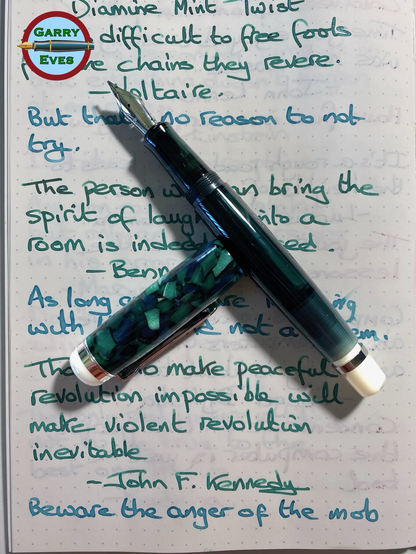 GARRY
EVES
Diamine Mint Twist
difficult to free fools
chains they revere.
- Voltaire.
But no reason to not
try.
The person bring the
spirit of into a
room is indeed
-
As long
with not a
to make peaceful
revolution impossible will
make violent revolution
inevitable
- John F. Kennedy
Beware the anger of the mob